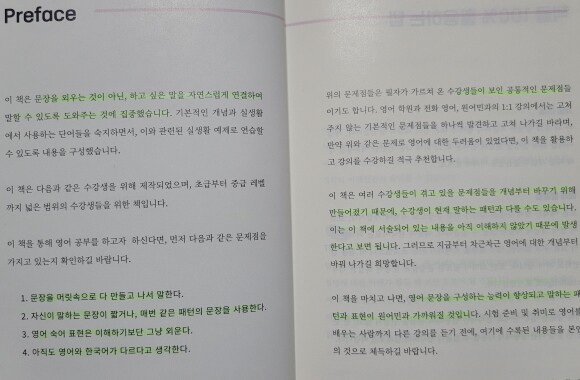 Preface
이 책은 문장을 외우는 것이 아닌, 하고 싶은 말을 자연스럽게 연결하여
말할 수 있도록 도와주는 것에 집중했습니다. 기본적인 개념과 실생활
에서 사용하는 단어들을 숙지하면서, 이와 관련된 실생활 예제로 연습할
수 있도록 내용을 구성했습니다.
이 책은 다음과 같은 수강생을 위해 제작되었으며, 초급부터 중급 레벨
까지 넓은 범위의 수강생들을 위한 책입니다.
이 책을 통해 영어 공부를 하고자 하신다면, 먼저 다음과 같은 문제점을
가지고 있는지 확인하길 바랍니다.
1. 문장을 머릿속으로 다 만들고 나서 말한다.
2. 자신이 말하는 문장이 짧거나, 매번 같은 패턴의 문장을 사용한다.
3. 영어 숙어 표현은 이해하기보단 그냥 외운다.
4. 아직도 영어와 한국어가 다르다고 생각한다.
위의 문제점들은 필자가 가르쳐 온 수강생들이 보인 공통적인 문제점들
이기도 합니다. 영어 학원과 전화 영어, 원어민과의 1:1 강의에서는 고쳐
주지 않는 기본적인 문제점들을 하나씩 발견하고 고쳐 나가길 바라며,
만약 위와 같은 문제로 영어에 대한 두려움이 있었다면, 이 책을 활용하
고 강의를 수강하길 적극 추천합니다.
이 책은 여러 수강생들이 겪고 있을 문제점들을 개념부터 바꾸기 위해
만들어졌기 때문에, 수강생이 현재 말하는 패턴과 다를 수도 있습니다.
이는 이 책에 서술되어 있는 내용을 아직 이해하지 않았기 때문에 발생
한다고 보면 됩니다. 그러므로 지금부터 차근차근 영어에 대한 개념부터
바꿔 나가길 희망합니다.
이 책을 마치고 나면, 영어 문장을 구성하는 능력이 향상되고 말하는 패
턴과 표현이 원어민과 가까워질 것입니다. 시험 준비 및 취미로 영어를
배우는 사람까지 다른 강의를 듣기 전에, 여기에 수록된 내용들을 본인
의 것으로 체득하길 바랍니다.